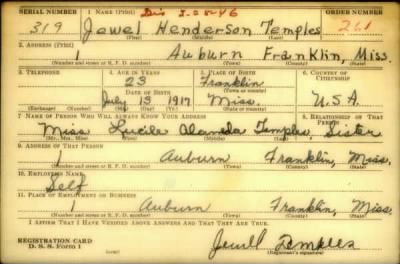 SERIAL NUMBER 1. NAME (Print) Dis ORDER NUMBER
319 Jewel Henderson Temples 261
2. ADDRESS (Print)
1 Auburn Franklin, Miss.
(Number and street or R. F. D. number) (Town) (County) (State)
3. TELEPHONE 4. AGE IN YEARS 5. PLACE OF BIRTH 6. COUNTRY OF CITIZENSHIP
23 Franklin
DATE OF BIRTH (Town or county)
July 13 1917 Miss. U.S.A.
(Exchange) (Number) (Mo.) (Day) (Yr.) (State or country)
7. NAME OF PERSON WHO WILL ALWAYS KNOW YOUR ADDRESS 8. RELATIONSHIP OF THAT PERSON
Miss Lucile Temples, Sister
(Mr., Mrs., Miss) (First) (Middle) (Last)
9. ADDRESS OF THAT PERSON
1 Auburn Franklin, Miss.
(Number and street or R. F. D. number) (Town) (County) (State)
10. EMPLOYER'S NAME
Self
11. PLACE OF EMPLOYMENT OR BUSINESS
1 Auburn Franklin, Miss.
(Number and street or R. F. D. number) (Town) (County) (State)
I AFFIRM THAT I HAVE VERIFIED ABOVE ANSWERS AND THAT THEY ARE TRUE.
REGISTRATION CARD
D. S. S. Form 1
Jewell Temples
(Registrant's signature)